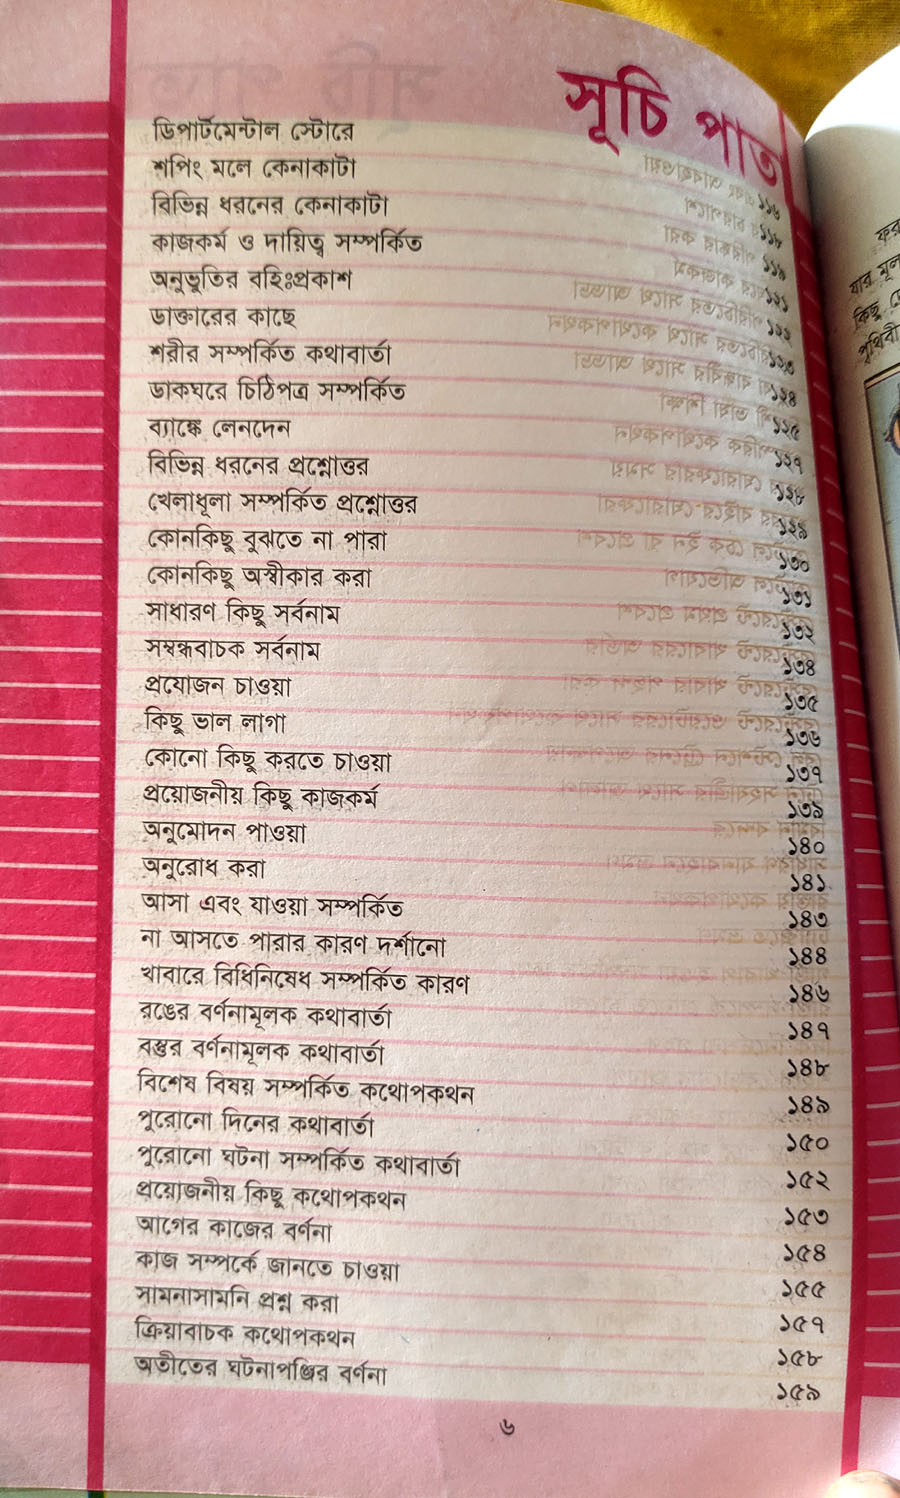 সূচি পাত
ডিপার্টমেন্টাল স্টোরে ১১৬
শপিং মলে কেনাকাটা ১১৮
বিভিন্ন ধরনের কেনাকাটা ১১৯
কাজকর্ম ও দায়িত্ব সম্পর্কিত ১২১
অনুভূতির বহিঃপ্রকাশ ১২২
ডাক্তারের কাছে ১২৩
শরীর সম্পর্কিত কথাবার্তা ১২৪
ডাকঘরে চিঠিপত্র সম্পর্কিত ১২৫
ব্যাঙ্কে লেনদেন ১২৭
বিভিন্ন ধরনের প্রশ্নোত্তর ১২৮
খেলাধূলা সম্পর্কিত প্রশ্নোত্তর ১২৯
কোনকিছু বুঝতে না পারা ১৩০
কোনকিছু অস্বীকার করা ১৩১
সাধারণ কিছু সর্বনাম ১৩২
সম্বন্ধবাচক সর্বনাম ১৩৪
প্রযোজন চাওয়া ১৩৫
কিছু ভাল লাগা ১৩৬
কোনো কিছু করতে চাওয়া ১৩৭
প্রয়োজনীয় কিছু কাজকর্ম ১৩৯
অনুমোদন পাওয়া ১৪০
অনুরোধ করা ১৪১
আসা এবং যাওয়া সম্পর্কিত ১৪৩
না আসতে পারার কারণ দর্শানো ১৪৪
খাবারে বিধিনিষেধ সম্পর্কিত কারণ ১৪৬
রঙের বর্ণনামূলক কথাবার্তা ১৪৭
বস্তুর বর্ণনামূলক কথাবার্তা ১৪৮
বিশেষ বিষয় সম্পর্কিত কথোপকথন ১৪৯
পুরোনো দিনের কথাবার্তা ১৫০
পুরোনো ঘটনা সম্পর্কিত কথাবার্তা ১৫২
প্রয়োজনীয় কিছু কথোপকথন ১৫৩
আগের কাজের বর্ণনা ১৫৪
কাজ সম্পর্কে জানতে চাওয়া ১৫৫
সামনাসামনি প্রশ্ন করা ১৫৭
ক্রিয়াবাচক কথোপকথন ১৫৮
অতীতের ঘটনাপঞ্জির বর্ণনা ১৫৯
৬
যার মূল
কিছু
পৃথিবী